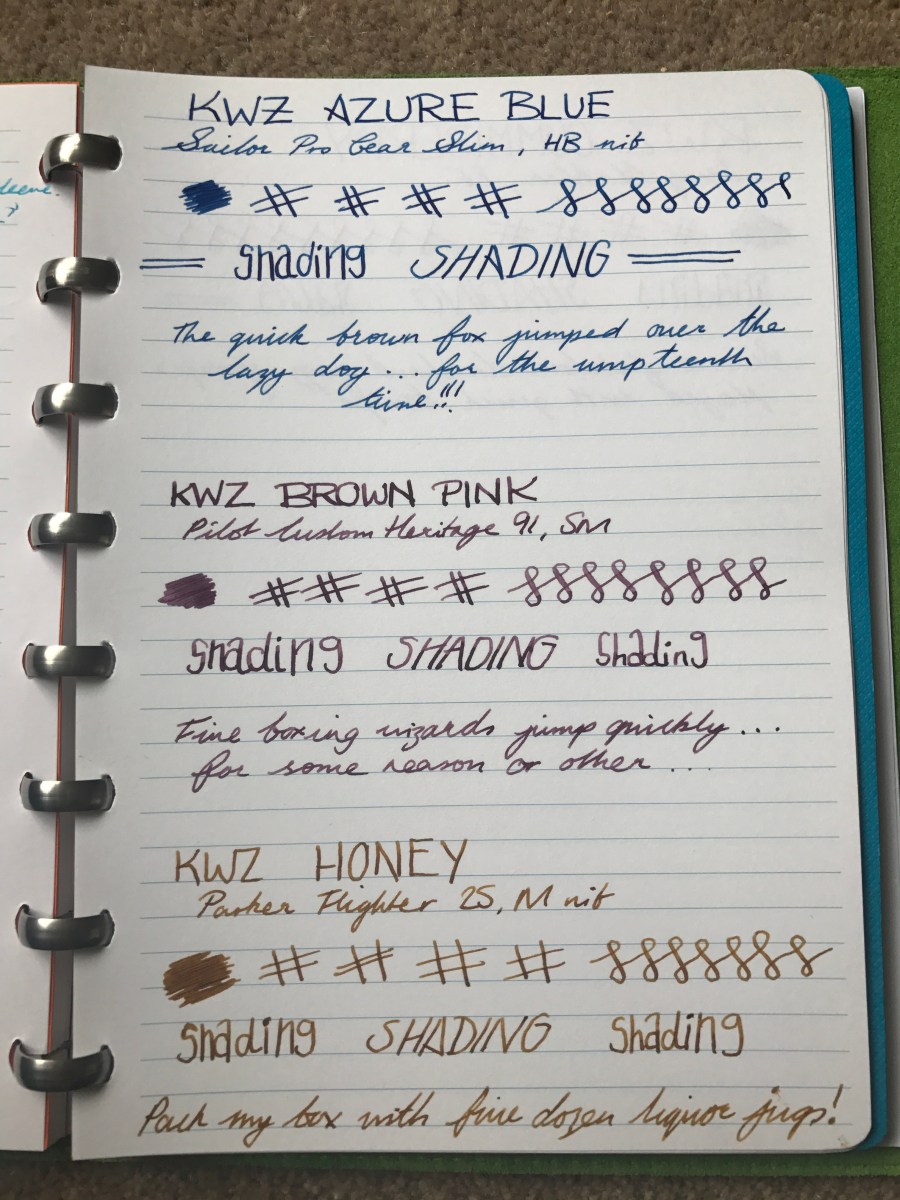 KWZ AZURE BLUE
Sailor Pro Gear Slim, HB nib
Shading SHADING
The quick brown fox jumped over the
lazy dog... for the umpteenth
time!!!
KWZ BROWN PINK
Pilot Custom Heritage 91, SM
Shading SHADING Shading
Five boxing wizards jump quickly...
for some reason or other....
KWZ HONEY
Parker Flighter 25, M nib
Shading SHADING Shading
Pack my box with five dozen liquor jugs!